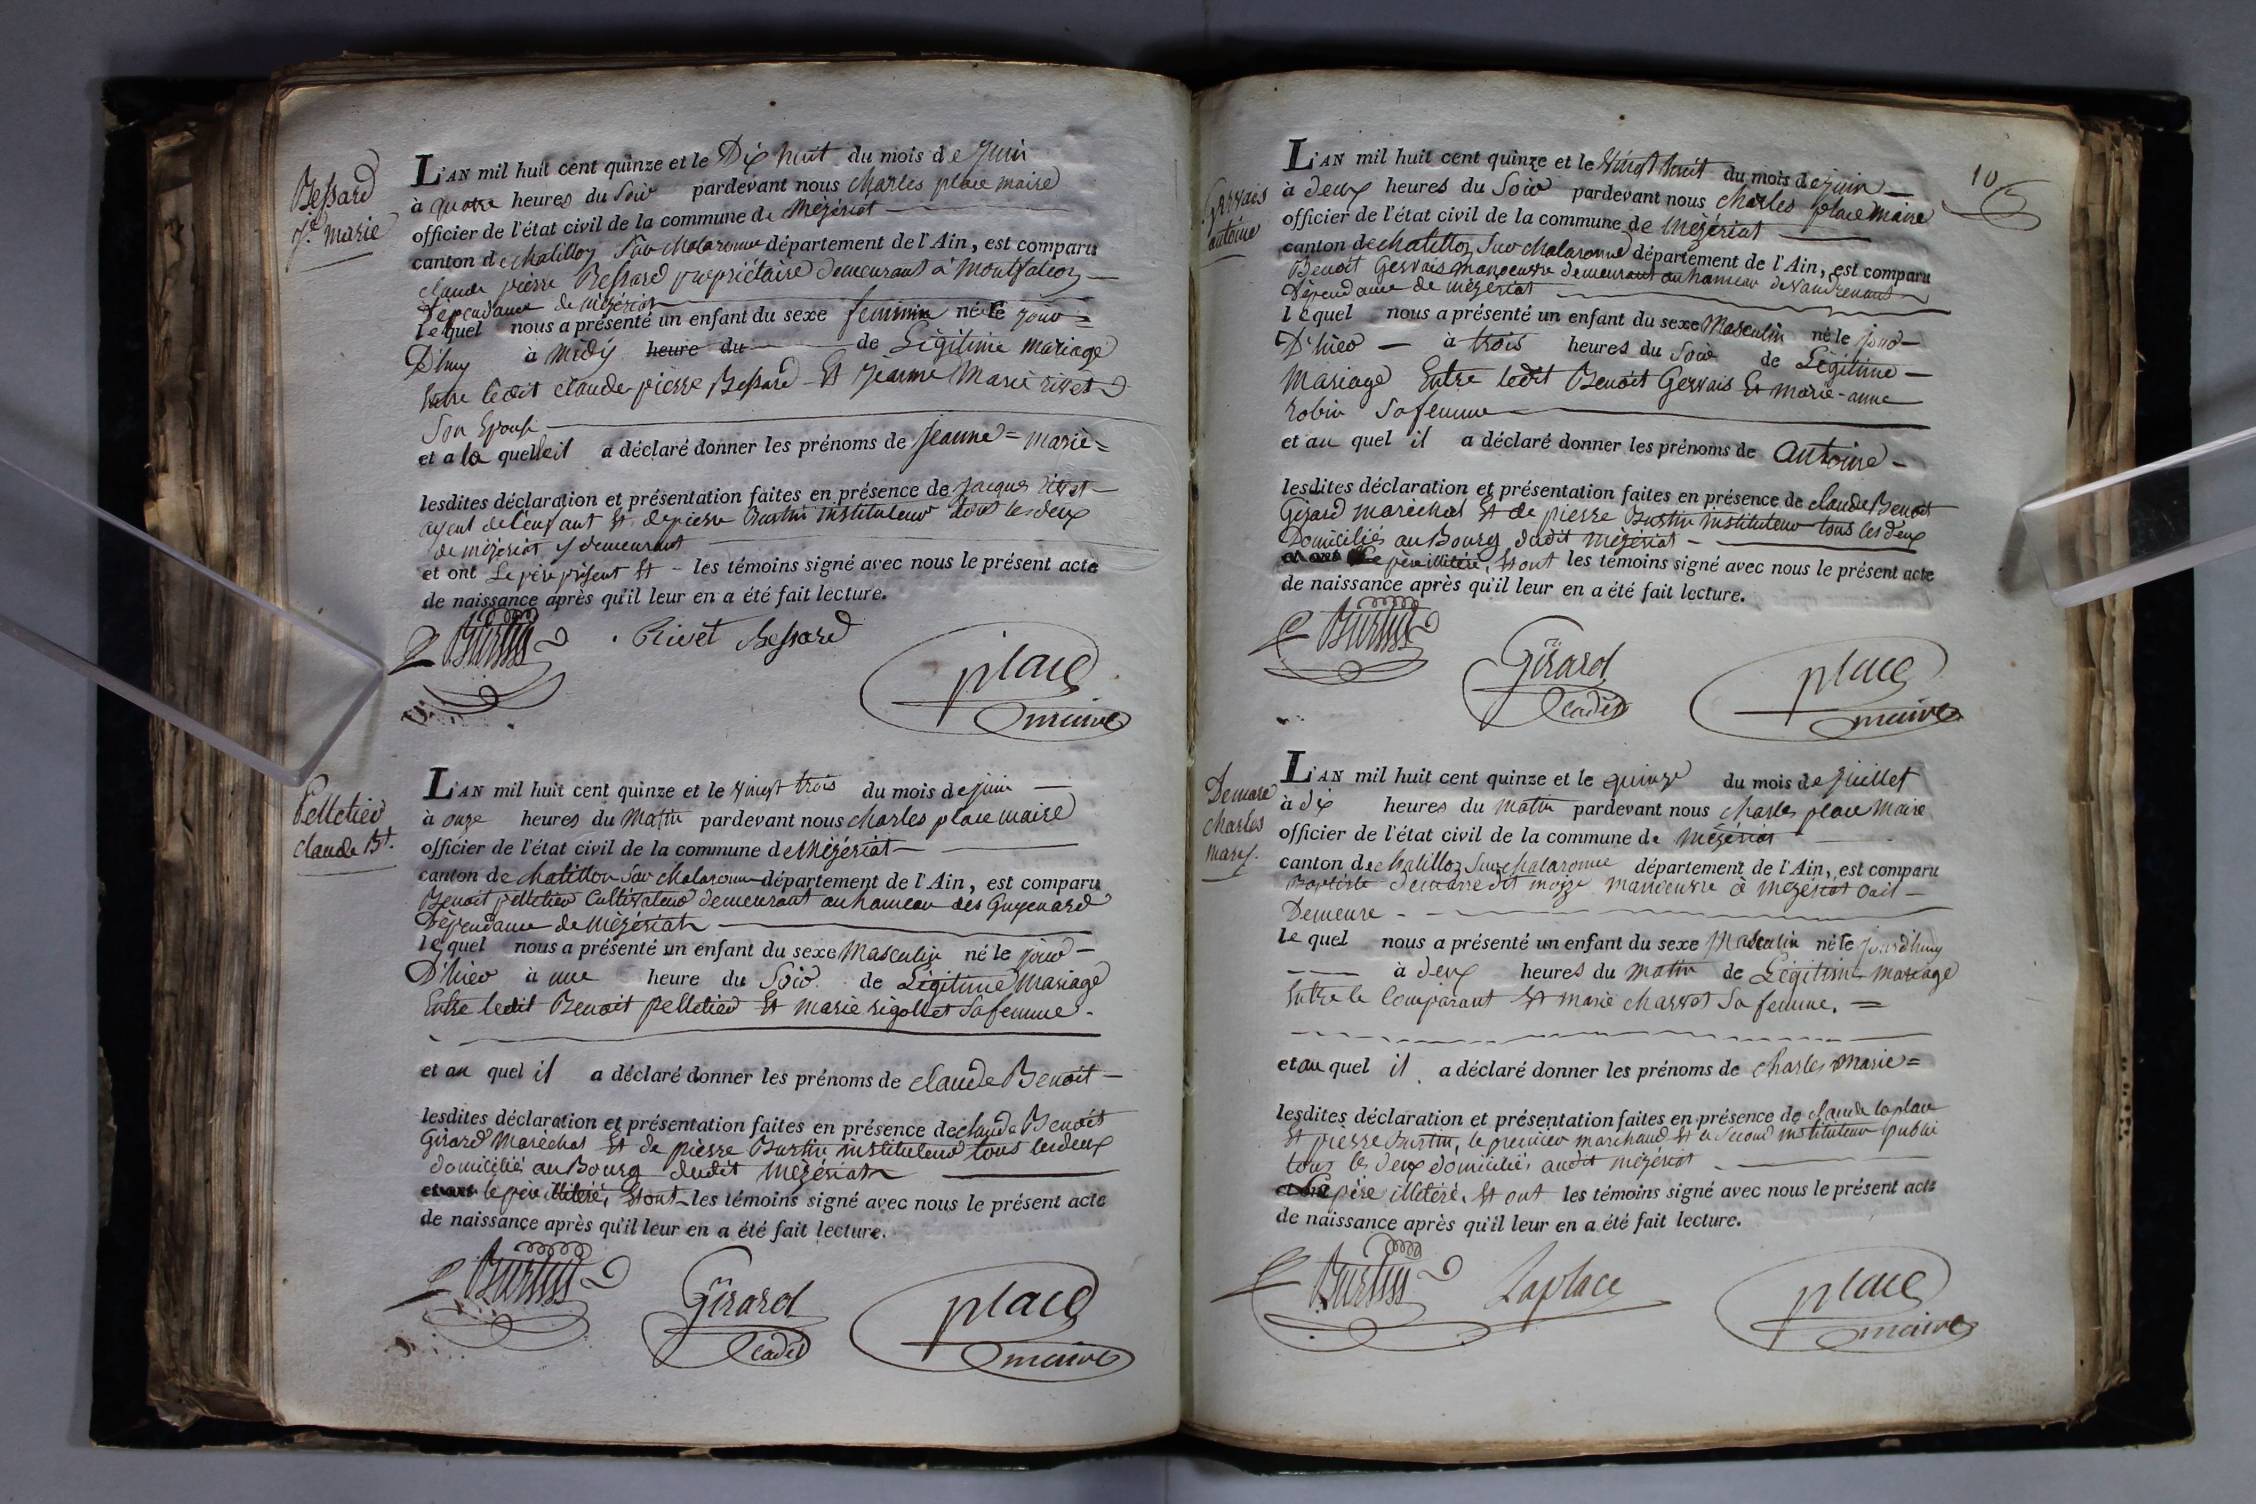 Bessard
J.ne marie
L'AN mil huit cent quinze et le Dix huit du mois de Juin
à quatre heures du Soir pardevant nous charles place maire
officier de l'état civil de la commune de Mézériat
canton de chatillon Sur chalaronne département de l'Ain, est comparu
claude pierre Bessard propriétaire demeurant à Montfalcon
Dépendance de mézériat
lequel nous a présenté un enfant du sexe feminin né le jour=
D'huy à Midy heure du de Légitime mariage
Entre ledit claude pierre Bessard Et Jeanne Marie rivet
Son Epouse
et a la quelle il a déclaré donner les prénoms de Jeanne=marie=
lesdites déclaration et présentation faites en présence de Jacques rivet
ayeul de l'enfant Et de pierre Burtin instituteur tous les deux
de mézériat y demeurant
et ont Le père présent Et les témoins signé avec nous le présent acte
de naissance après qu'il leur en a été fait lecture.
Burtin Rivet Bessard
place
maire
Pelletier
claude Bt.
L'AN mil huit cent quinze et le Vingt trois du mois de juin
à onze heures du Matin pardevant nous charles place maire
officier de l'état civil de la commune de Mézériat
canton de chatillon Sur chalaronne département de l'Ain, est comparu
Benoit pelletier Cultivateur demeurant au hameau des Guyenard
Dépendance de Mézériat
lequel nous a présenté un enfant du sexe Masculin né le jour
D'hier à une heure du Soir de Légitime Mariage
Entre ledit Benoit pelletier Et marie rigollet Sa femme.
et au quel il a déclaré donner les prénoms de claude Benoit
lesdites déclaration et présentation faites en présence de claude Benoit
Girard Maréchal Et de pierre Burtin instituteur tous les deux
domiciliés au Bourg dudit Mézériat
et ont le père illitéré, Et ont les témoins signé avec nous le présent acte
de naissance après qu'il leur en a été fait lecture.
Burtin Girard
cadet
place
maire
10
Gervais
antoine
L'AN mil huit cent quinze et le Vingt huit du mois de juin
à deux heures du Soir pardevant nous charles place Maire
officier de l'état civil de la commune de Mézériat
canton de chatillon Sur chalaronne département de l'Ain, est comparu
Benoit Gervais manoeuvre demeurant au hameau de Vandrenant
Dépendance de mézériat
lequel nous a présenté un enfant du sexe Masculin né le jour
D'hier à trois heures du Soir de Légitime
Mariage Entre ledit Benoit Gervais Et marie-anne
robin Sa femme
et au quel il a déclaré donner les prénoms de antoine
lesdites déclaration et présentation faites en présence de claude Benoit
Girard maréchal Et de pierre Burtin instituteur tous les deux
Domiciliés au Bourg dudit Mézériat
et ont Le père illitéré, Et ont les témoins signé avec nous le présent acte
de naissance après qu'il leur en a été fait lecture.
Burtin Girard
cadet
place
maire
Demare
charles
marie.
L'AN mil huit cent quinze et le quinze du mois de Juillet
à dix heures du matin pardevant nous charles place Maire
officier de l'état civil de la commune de Mézériat
canton de chatillon Sur chalaronne département de l'Ain, est comparu
Baptiste Demarre dit moize manoeuvre à Mézériat ou il
Demeure
lequel nous a présenté un enfant du sexe Masculin né le jourd'huy
à deux heures du matin de Légitime mariage
Entre le Comparant Et marie charvot Sa femme. =
et au quel il a déclaré donner les prénoms de charles marie=
lesdites déclaration et présentation faites en présence de claude laplace
Et pierre Burtin, le premier marchand Et le Second instituteur public
tous les deux domiciliés audit mézériat
et ont Le père illitéré, Et ont les témoins signé avec nous le présent acte
de naissance après qu'il leur en a été fait lecture.
Burtin Laplace
place
maire